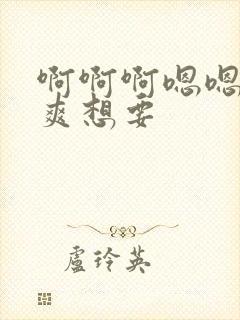 啊啊啊嗯嗯
爽想要
盧玲英